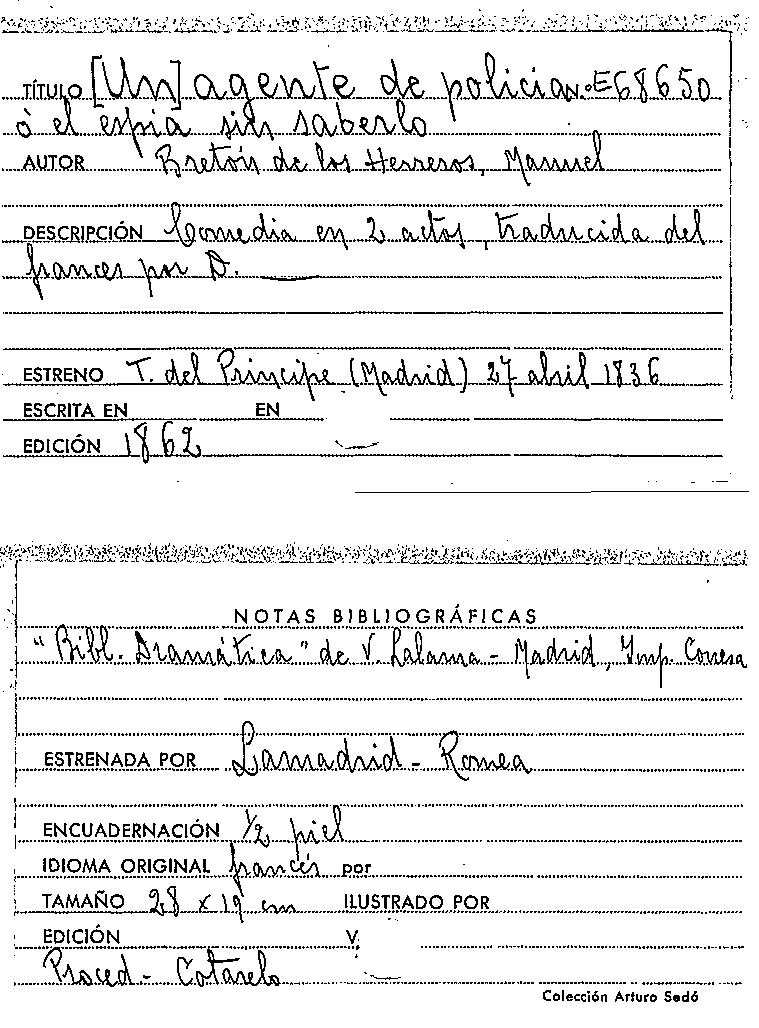 TÍTULO [Un] agente de policia N.º E68650
ó el espia sin saberlo
AUTOR Bretón de los Herreros, Manuel
DESCRIPCIÓN Comedia en 2 actos, traducida del
frances por D. —
ESTRENO T. del Principe (Madrid) 27 abril 1836
ESCRITA EN EN
EDICIÓN 1862
NOTAS BIBLIOGRÁFICAS
"Bibl. Dramática" de V. Lalama - Madrid, Imp. Conesa
ESTRENADA POR Lamadrid - Romea
ENCUADERNACIÓN 1/2 piel
IDIOMA ORIGINAL francés por
TAMAÑO 28 x 19 cm ILUSTRADO POR
EDICIÓN V.
Proced - Cotarelo
Colección Arturo Sedó